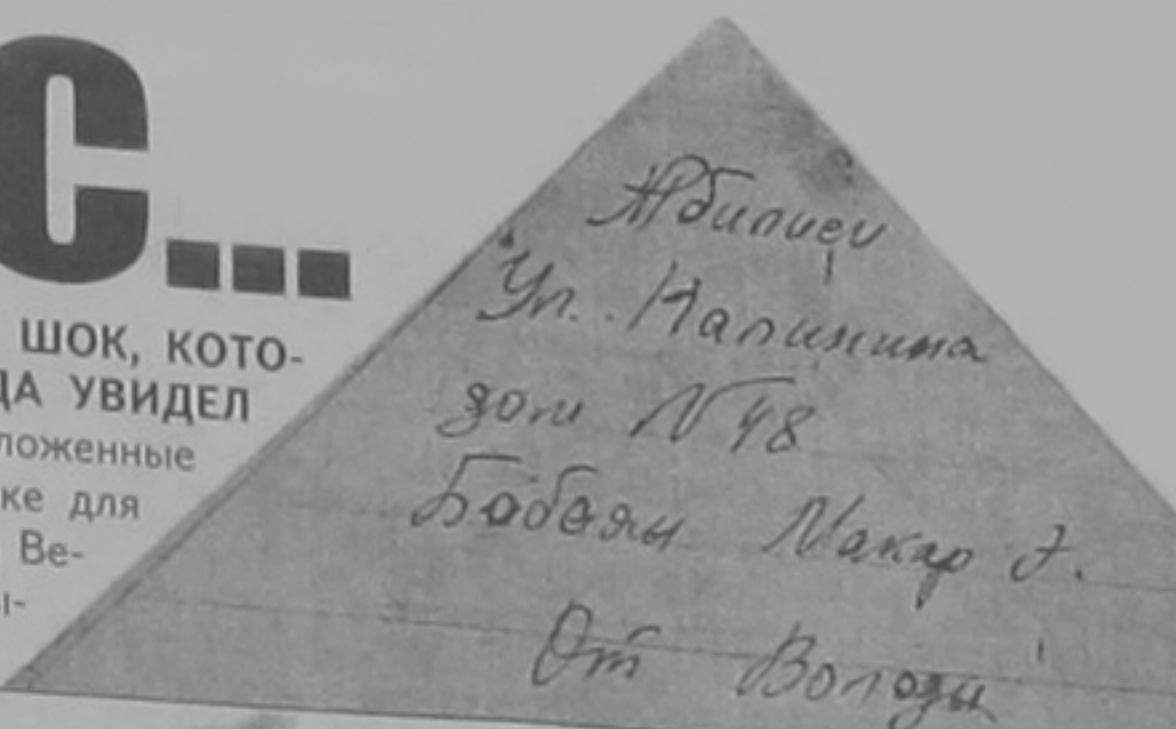 С...
ШОК, КОТО-
ДА УВИДЕЛ
ложенные
ке для
Ве-
ы-
Тбилиси
Ул. Калинина
дом N 48
Бабаян Макар Э.
От Володи